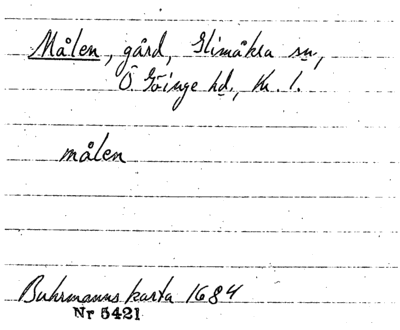 Målen, gård, Glimåkra sn,
Ö. Göinge hd., Kr. l.
målen
Buhrmanns karta 1684
Nr 5421